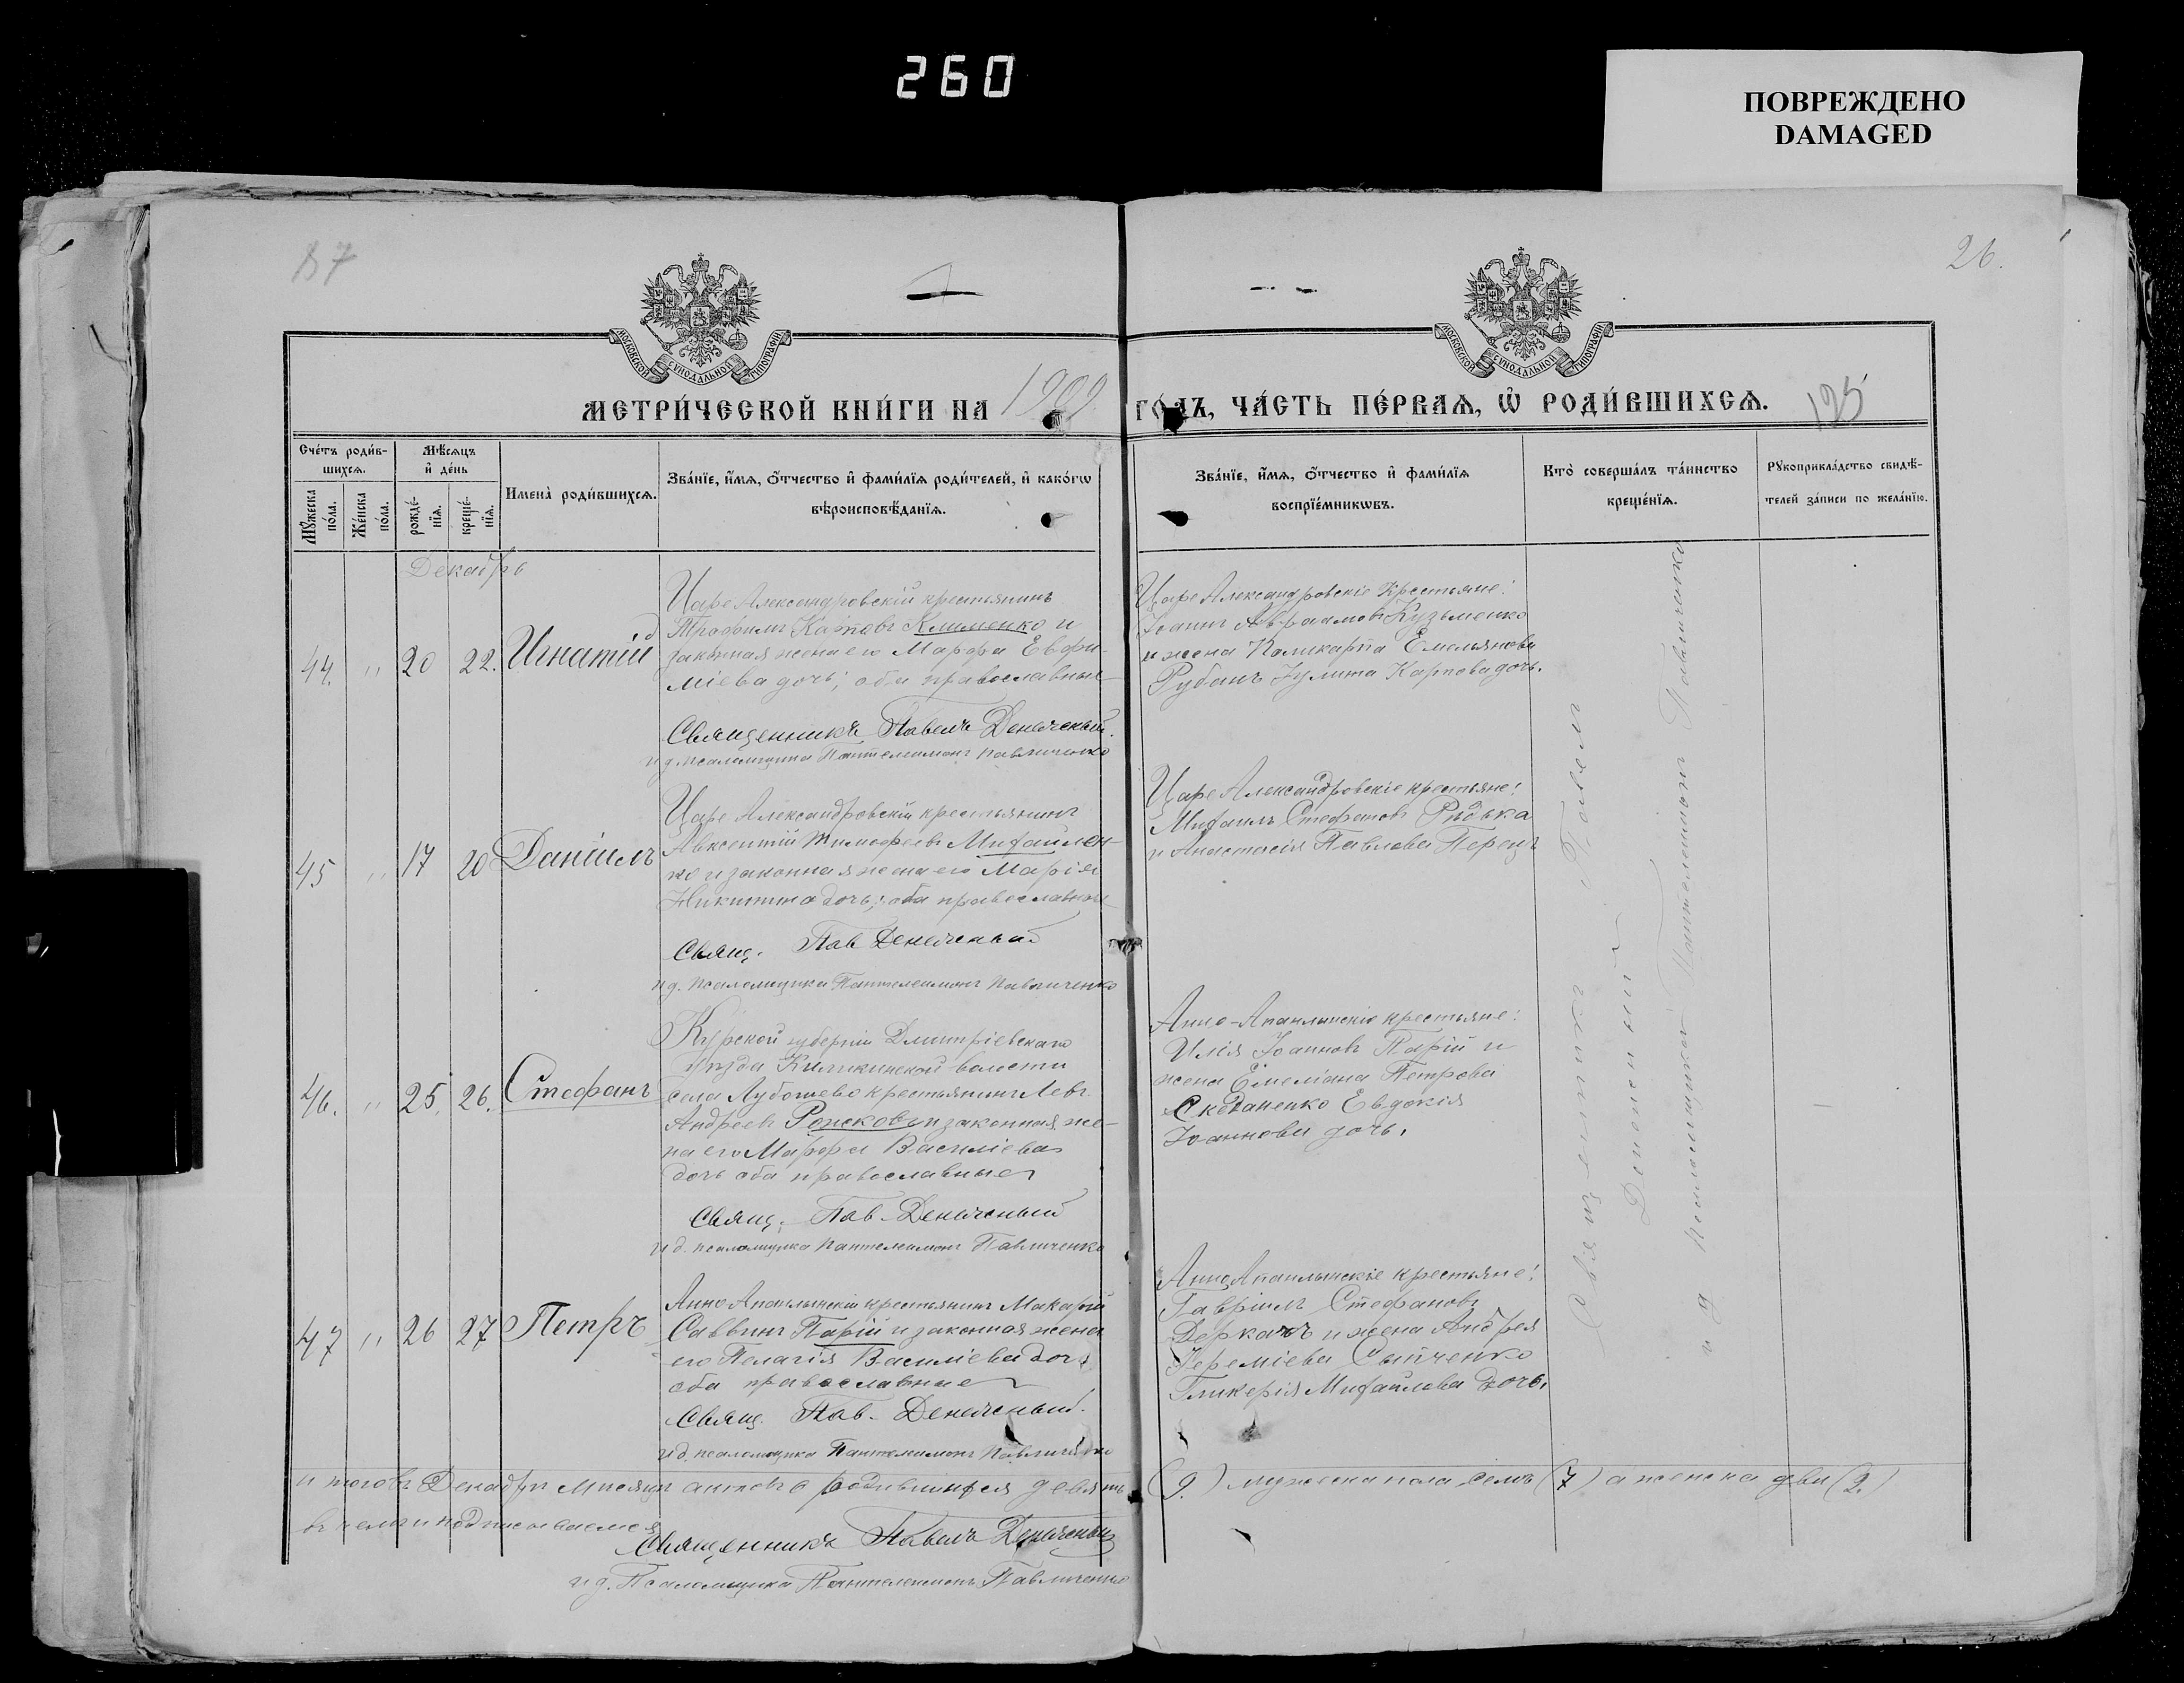 260
ПОВРЕЖДЕНО
DAMAGED
87
26.
МОСКОВСКОЙ СѴНОДАЛЬНОЙ ТИПОГРАФІИ
МОСКОВСКОЙ СѴНОДАЛЬНОЙ ТИПОГРАФІИ
МЕТРИ́ЧЕСКОЙ КНИ́ГИ НА 1909 ГО́ДЪ, ЧА́СТЬ ПЕ́РВАѦ, Ѡ РОДИ́ВШИХСѦ. 125
Сче́тъ роди́в-
шихсѧ.
Мꙋжеска по́ла.
Же́нска по́ла.
Мѣ́сѧцъ
и҆ де́нь
рожде́-
нїѧ.
креще́-
нїѧ.
Имена̀ роди́вшихсѧ.
Зва́нїе, и҆́мѧ, ѻ҆́тчество и҆ фами́лїѧ роди́телей, и҆ како́гѡ
вѣроисповѣ́данїѧ.
Зва́нїе, и҆́мѧ, ѻ҆́тчество и҆ фами́лїѧ
воспрїе́мникѡвъ.
Кто̀ соверша́лъ та́инство
креще́нїѧ.
Рꙋкоприкла́дство свидѣ́-
телей за́писи по жела́нїю.
Декабрь
44. " 20 22. Игнатій
Царе Александровскій крестьянинъ
Трофимъ Карповъ Клименко и
законная жена его Марфа Евфи-
міева дочь; оба православные
Священникъ Павелъ
и д. псаломщика Пантелеимонъ Павличенко
Царе Александровскіе крестьяне:
Іоаннъ Авраамовъ Кузьменко
и жена Поликарпа Емельянова
Рубанъ Іулита Карпова дочь.
45 " 17 20 Даніилъ
Царе Александровскій крестьянинъ
Авксентій Тимофеевъ Михайлен-
ко и законная жена его Марія
Никитина дочь; оба православные
Свящ. Пав
и д. псаломщика Пантелеимонъ Павличенко
Царе Александровскіе крестьяне:
Михаилъ Стефановъ Рѣдька
и Анастасія Павлова Перецъ
46. " 25. 26. Стефанъ
Курской губерніи Дмитріевскаго
уѣзда волости
села крестьянинъ Левъ
Андреевъ Рожковъ и законная же-
на его Марфа Василіева
дочь оба православные
Свящ. Пав.
и д. псаломщика Пантелеимонъ Павличенко
крестьяне:
Илія Іоанновъ Парій и
жена Емеліана Петрова
Евдокія
Іоаннова дочь.
47 " 26 27 Петръ
крестьянинъ Макарій
Саввинъ Парій и законная жена
его Пелагія Василіева дочь
оба православные
Свящ. Пав.
и д. псаломщика Пантелеимонъ Павличенко
крестьяне:
Гавріилъ Стефановъ
Деркачъ и жена Андрея
Іереміева
Гликерія Михайлова дочь.
Священникъ Павелъ
и д псаломщика Пантелеимонъ Павличенко
Декабрѣ мѣсяцѣ родившихся девять (9.) мужеска пола семь (7) а женска двѣ (2.)
въ чемъ и подписываемся
Священникъ Павелъ
и д. Псаломщика Пантелеимонъ Павличенко